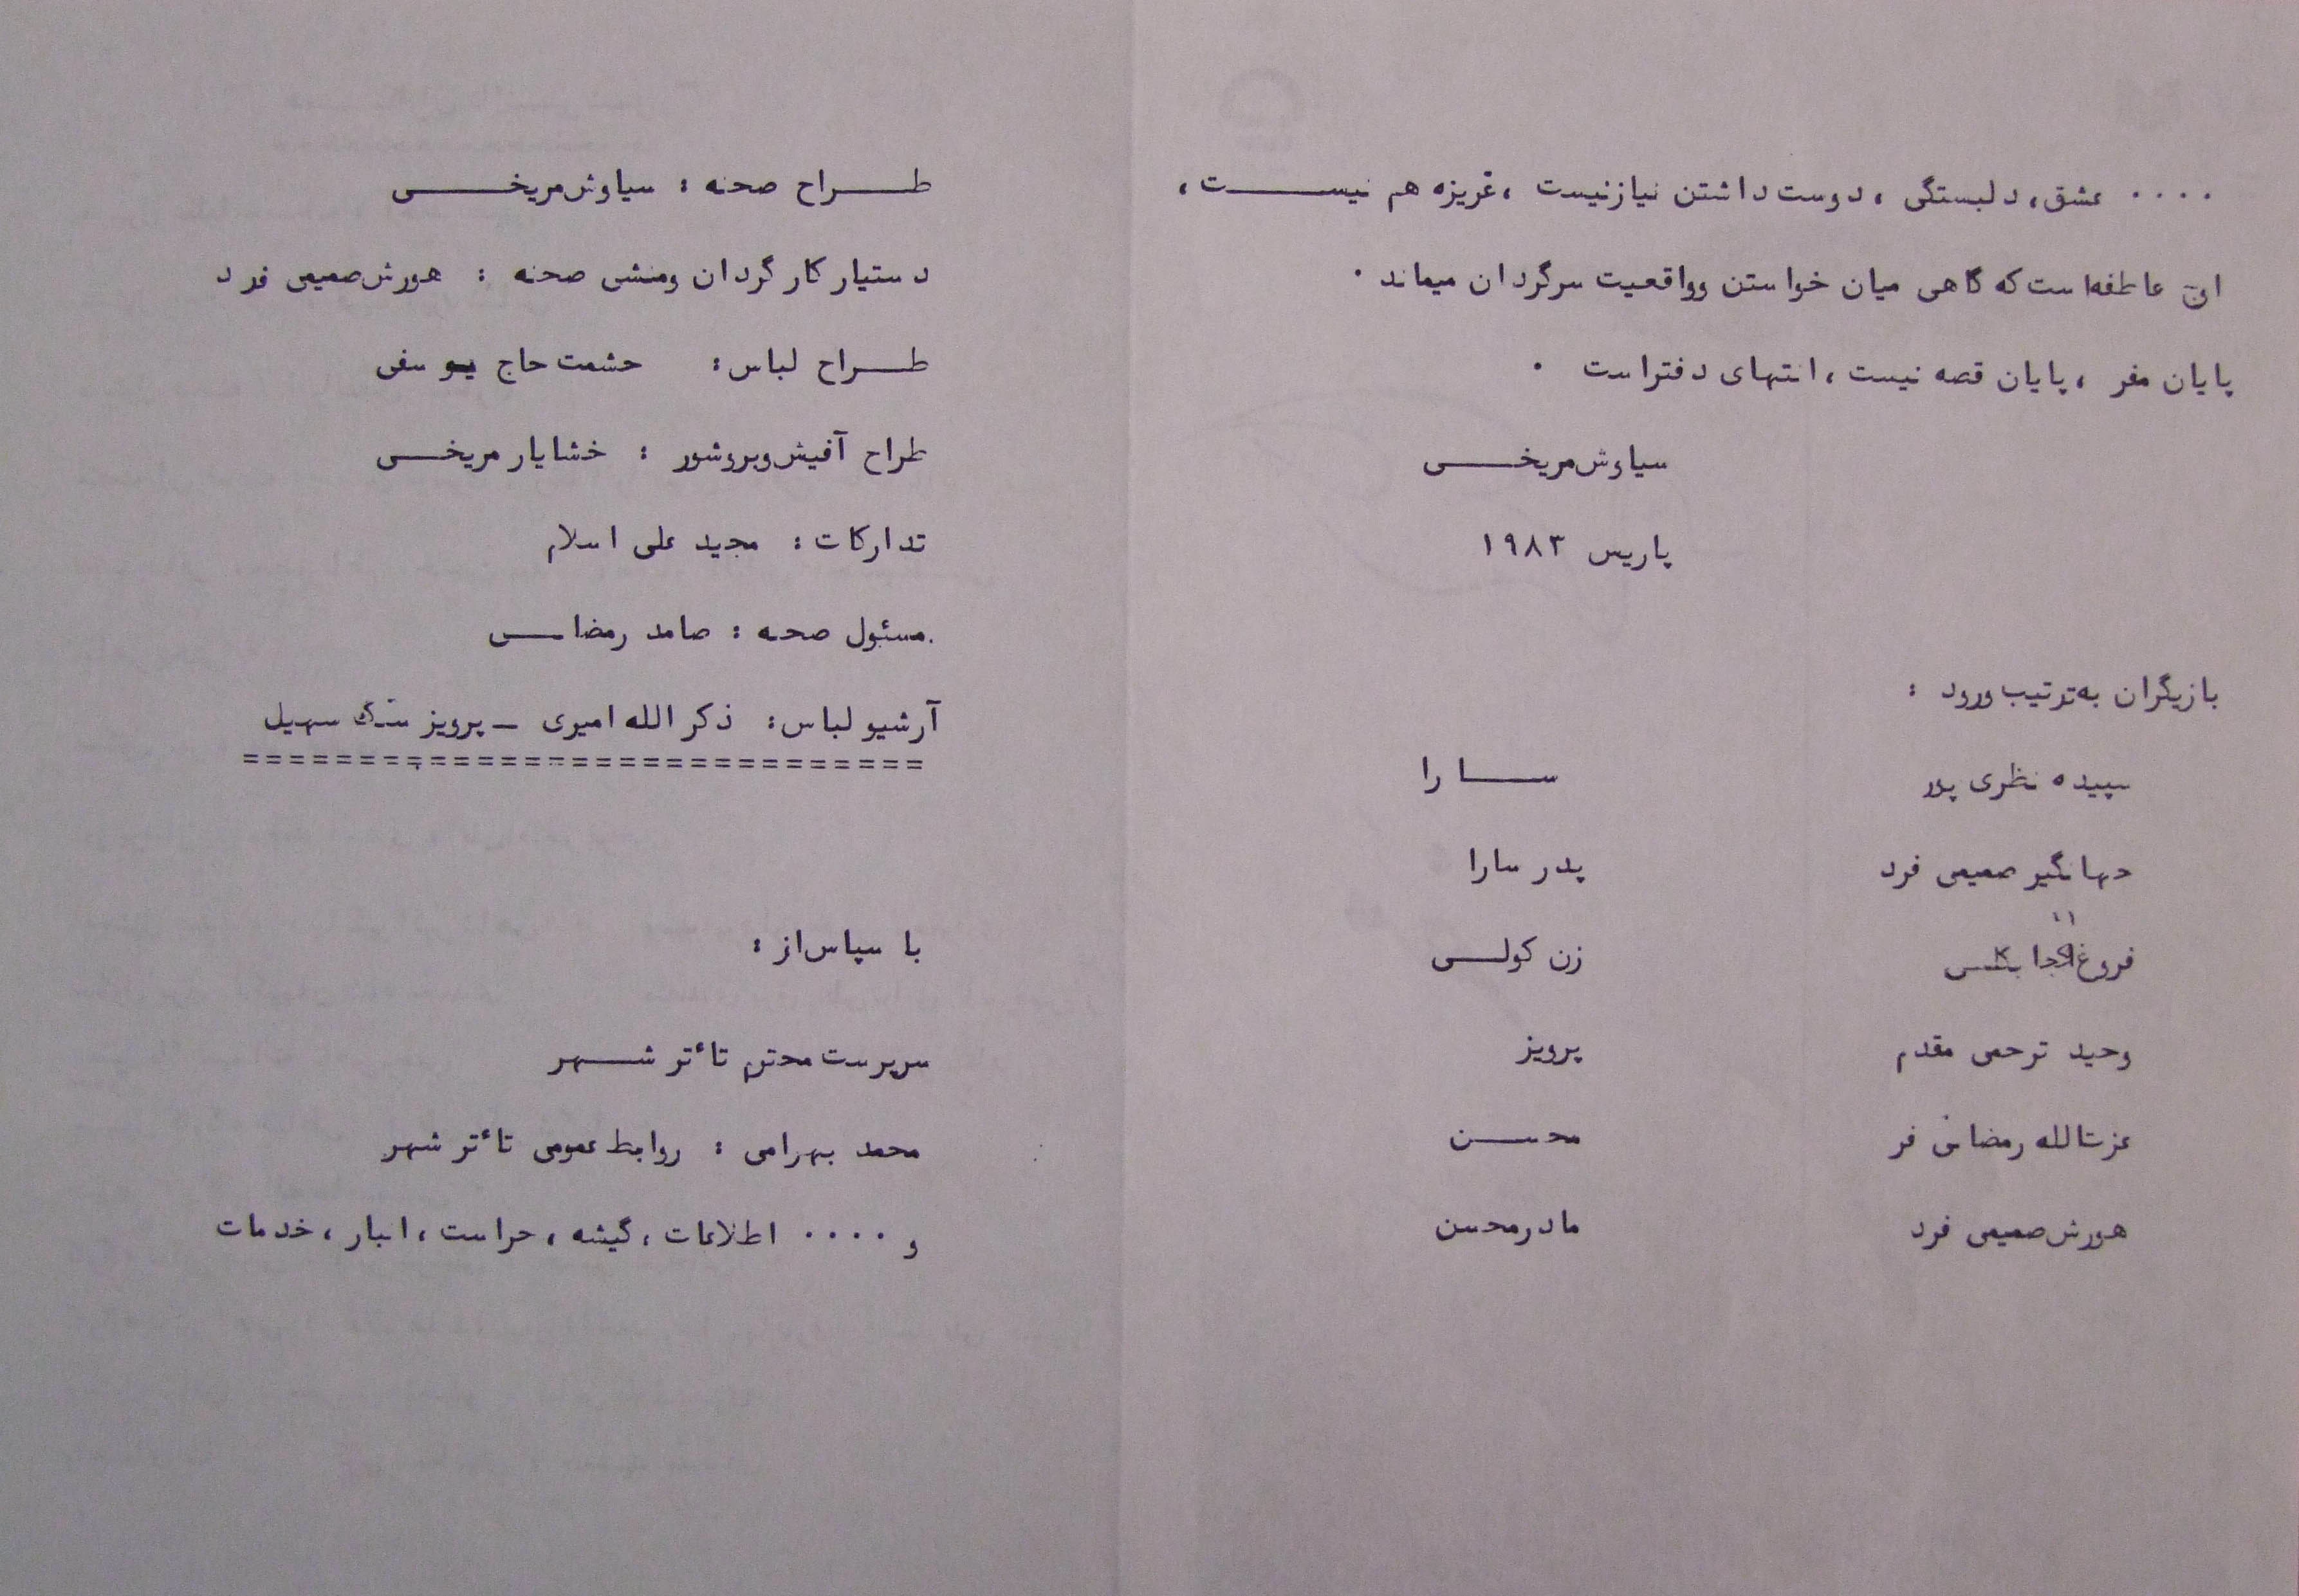 .... عشق، دلبستگی ، دوست داشتن نیازنیست ، غریزه هم نیست ،
این عاطفه‌است که گاهی میان خواستن وواقعیت سرگردان میماند .
پایان مفر ، پایان قصه نیست ، انتهای دفتراست .
سیاوش مریخی
پاریس ۱۹۸۳
بازیگران به ترتیب ورود :
سپیده نظری پور سارا
جهانگیر صمیمی فرد پدر سارا
فروغ زن کولی
وحید ترحمی مقدم پرویز
عزت‌الله رمضانی فر محسن
هورش صمیمی فرد مادرمحسن
طراح صحنه : سیاوش مریخی
دستیار کارگردان ومنشی صحنه : هورش صمیمی فرد
طراح لباس : حشمت حاج یوسفی
طراح آفیش وبروشور : خشایار مریخی
تدارکات : مجید علی اسلام
مسئول صحنه : رمضانی
آرشیو لباس : ذکرالله امیری ـ پرویز سهیل
============================
با سپاس از :
سرپرست محترم تاٴتر شهر
محمد بهرامی : روابط عمومی تاٴتر شهر
و .... اطلاعات ، گیشه ، حراست ، انبار ، خدمات